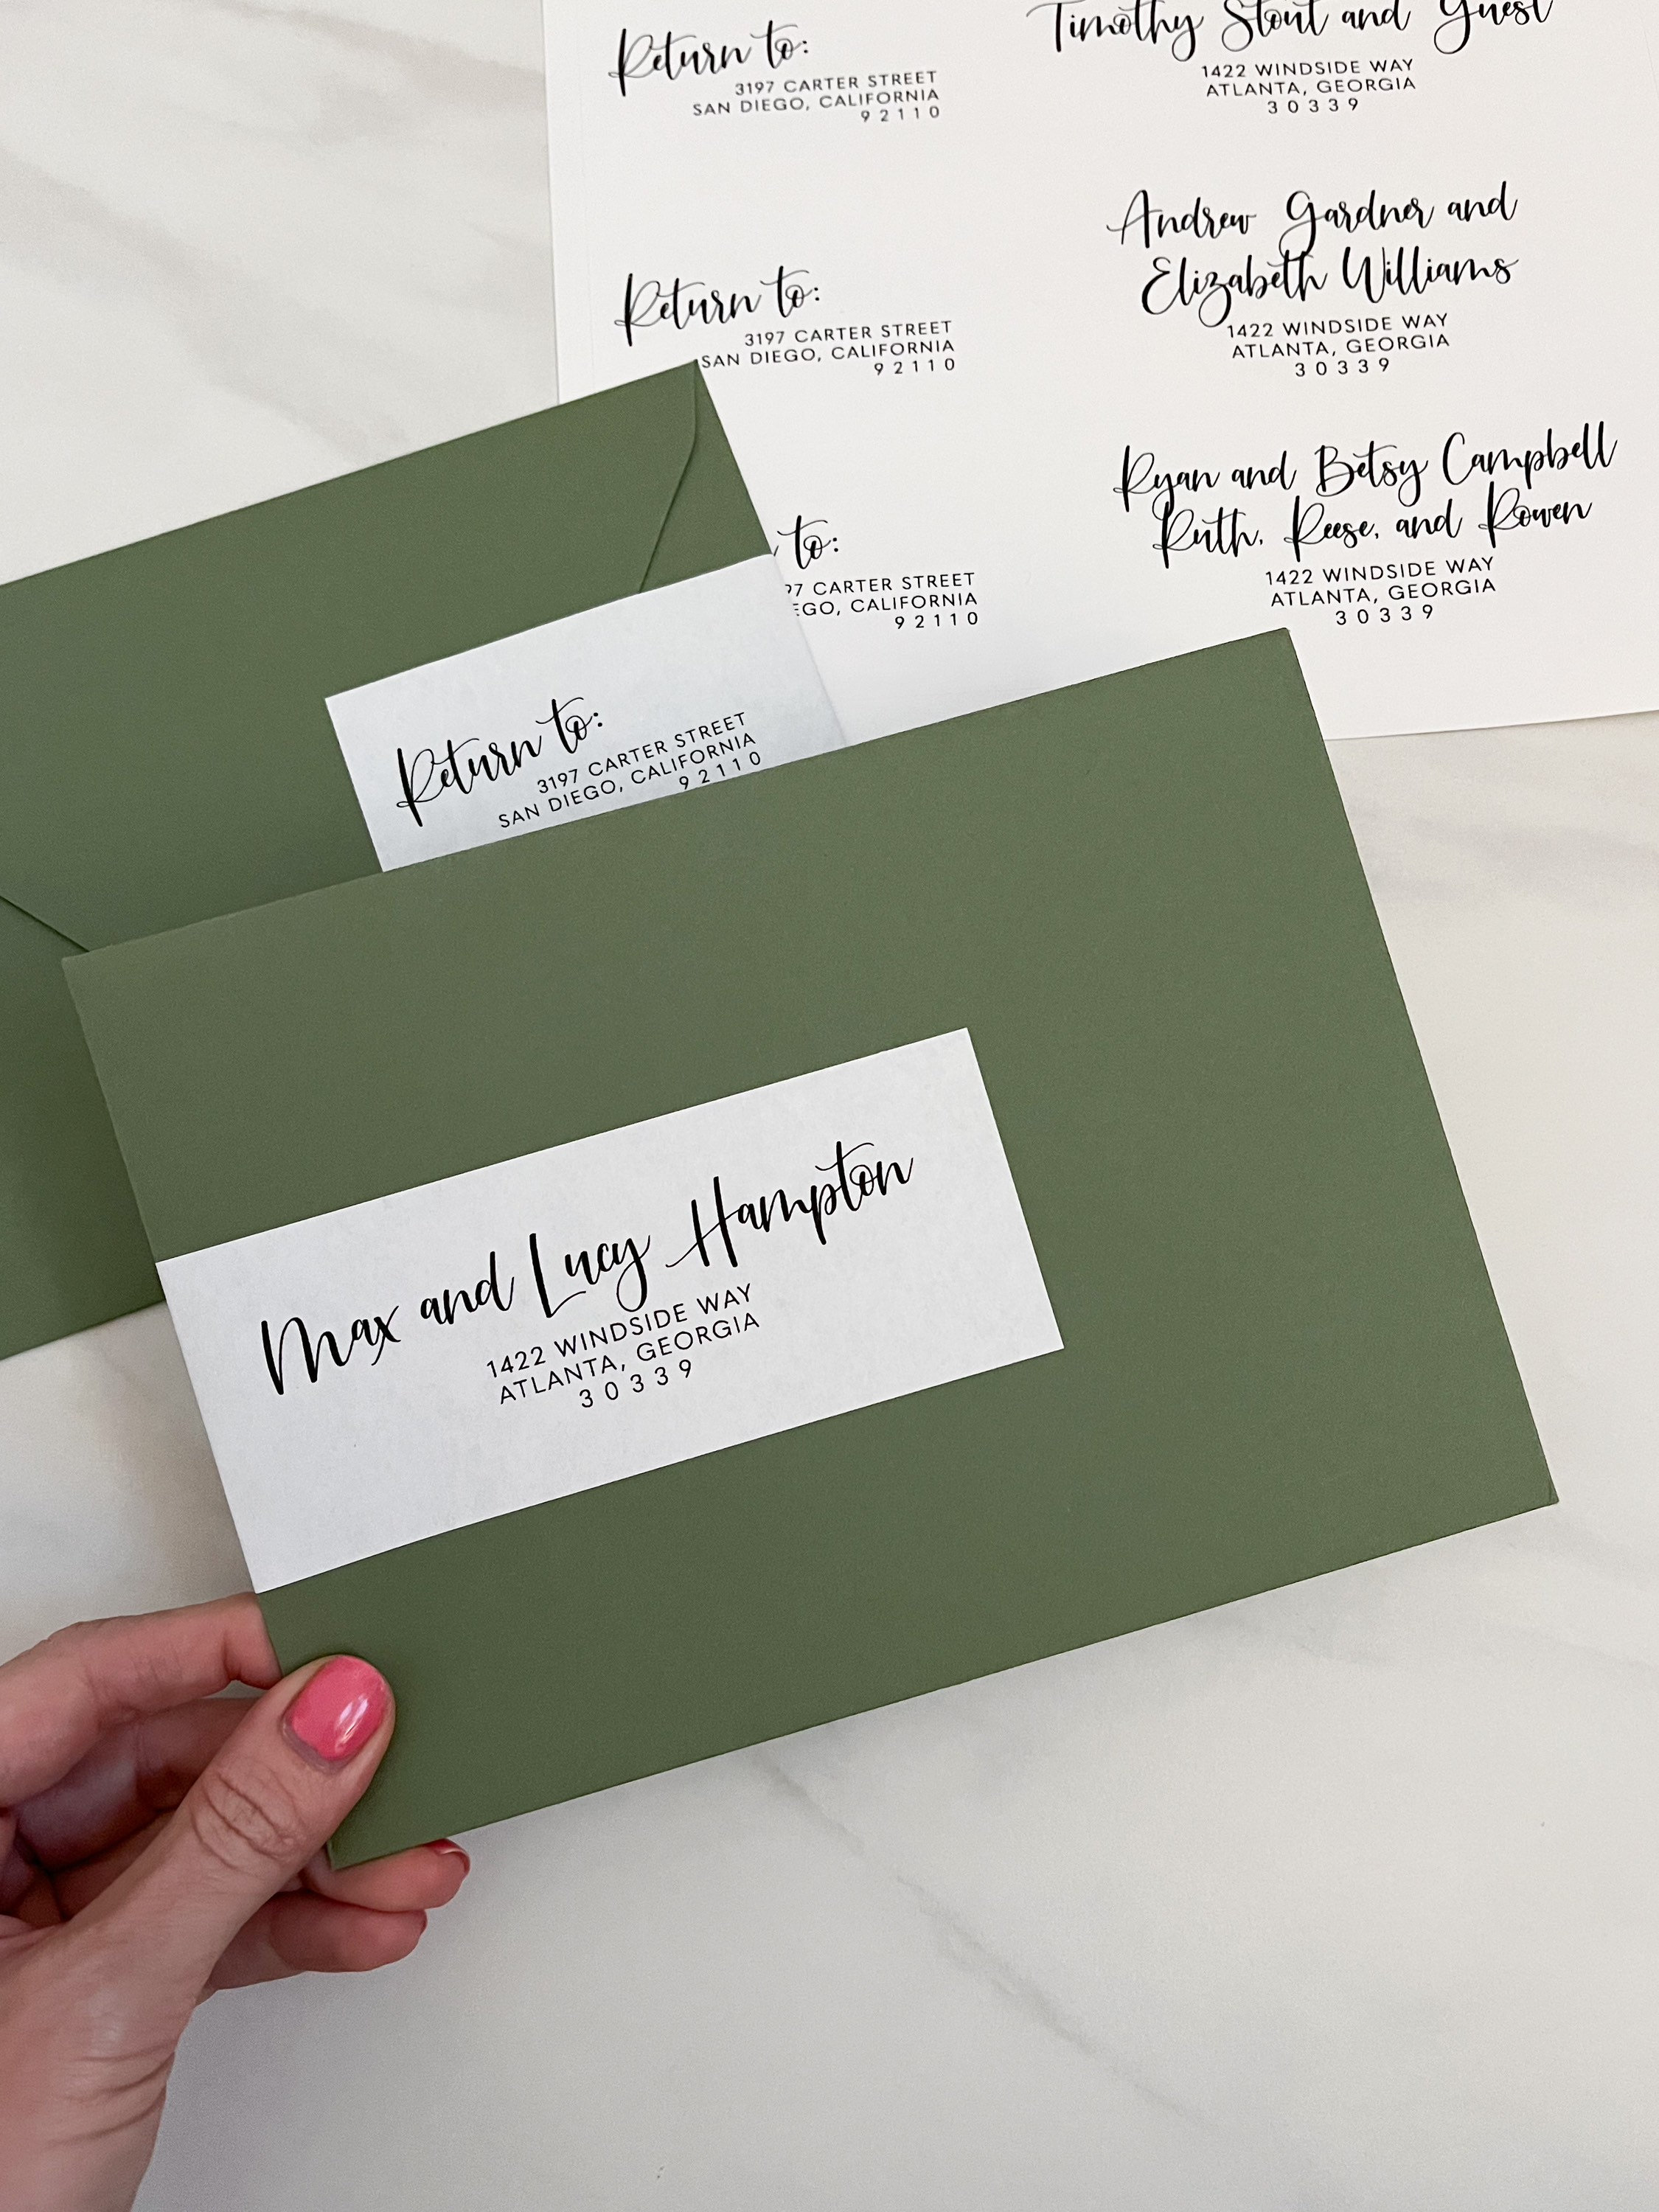 Return to:
3197 CARTER STREET
SAN DIEGO, CALIFORNIA
92110
Timothy Stout and Guest
1422 WINDSIDE WAY
ATLANTA, GEORGIA
30339
Return to:
3197 CARTER STREET
SAN DIEGO, CALIFORNIA
92110
Andrew Gardner and
Elizabeth Williams
1422 WINDSIDE WAY
ATLANTA, GEORGIA
30339
to:
97 CARTER STREET
EGO, CALIFORNIA
92110
Ryan and Betsy Campbell
Ruth, Reese, and Rowen
1422 WINDSIDE WAY
ATLANTA, GEORGIA
30339
Return to:
3197 CARTER STREET
SAN DIEGO, CALIFORNIA
92110
Max and Lucy Hampton
1422 WINDSIDE WAY
ATLANTA, GEORGIA
30339